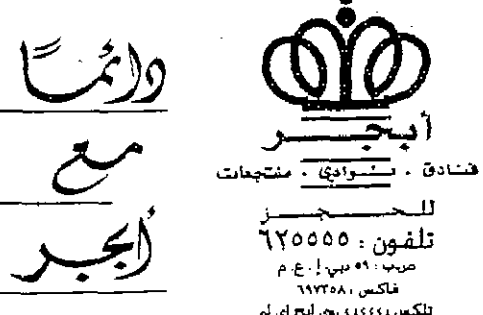 دائمًا
مع
أبجر
أبجر
فنادق . نوادي . منتجعات
للحجز
تلفون : ٦٢٥٥٥٥
ص.ب : ٥٩ دبي إ . ع . م
فاكس : ٦٩٧٣٥٨
تلكس : ٤٤٤٤٤